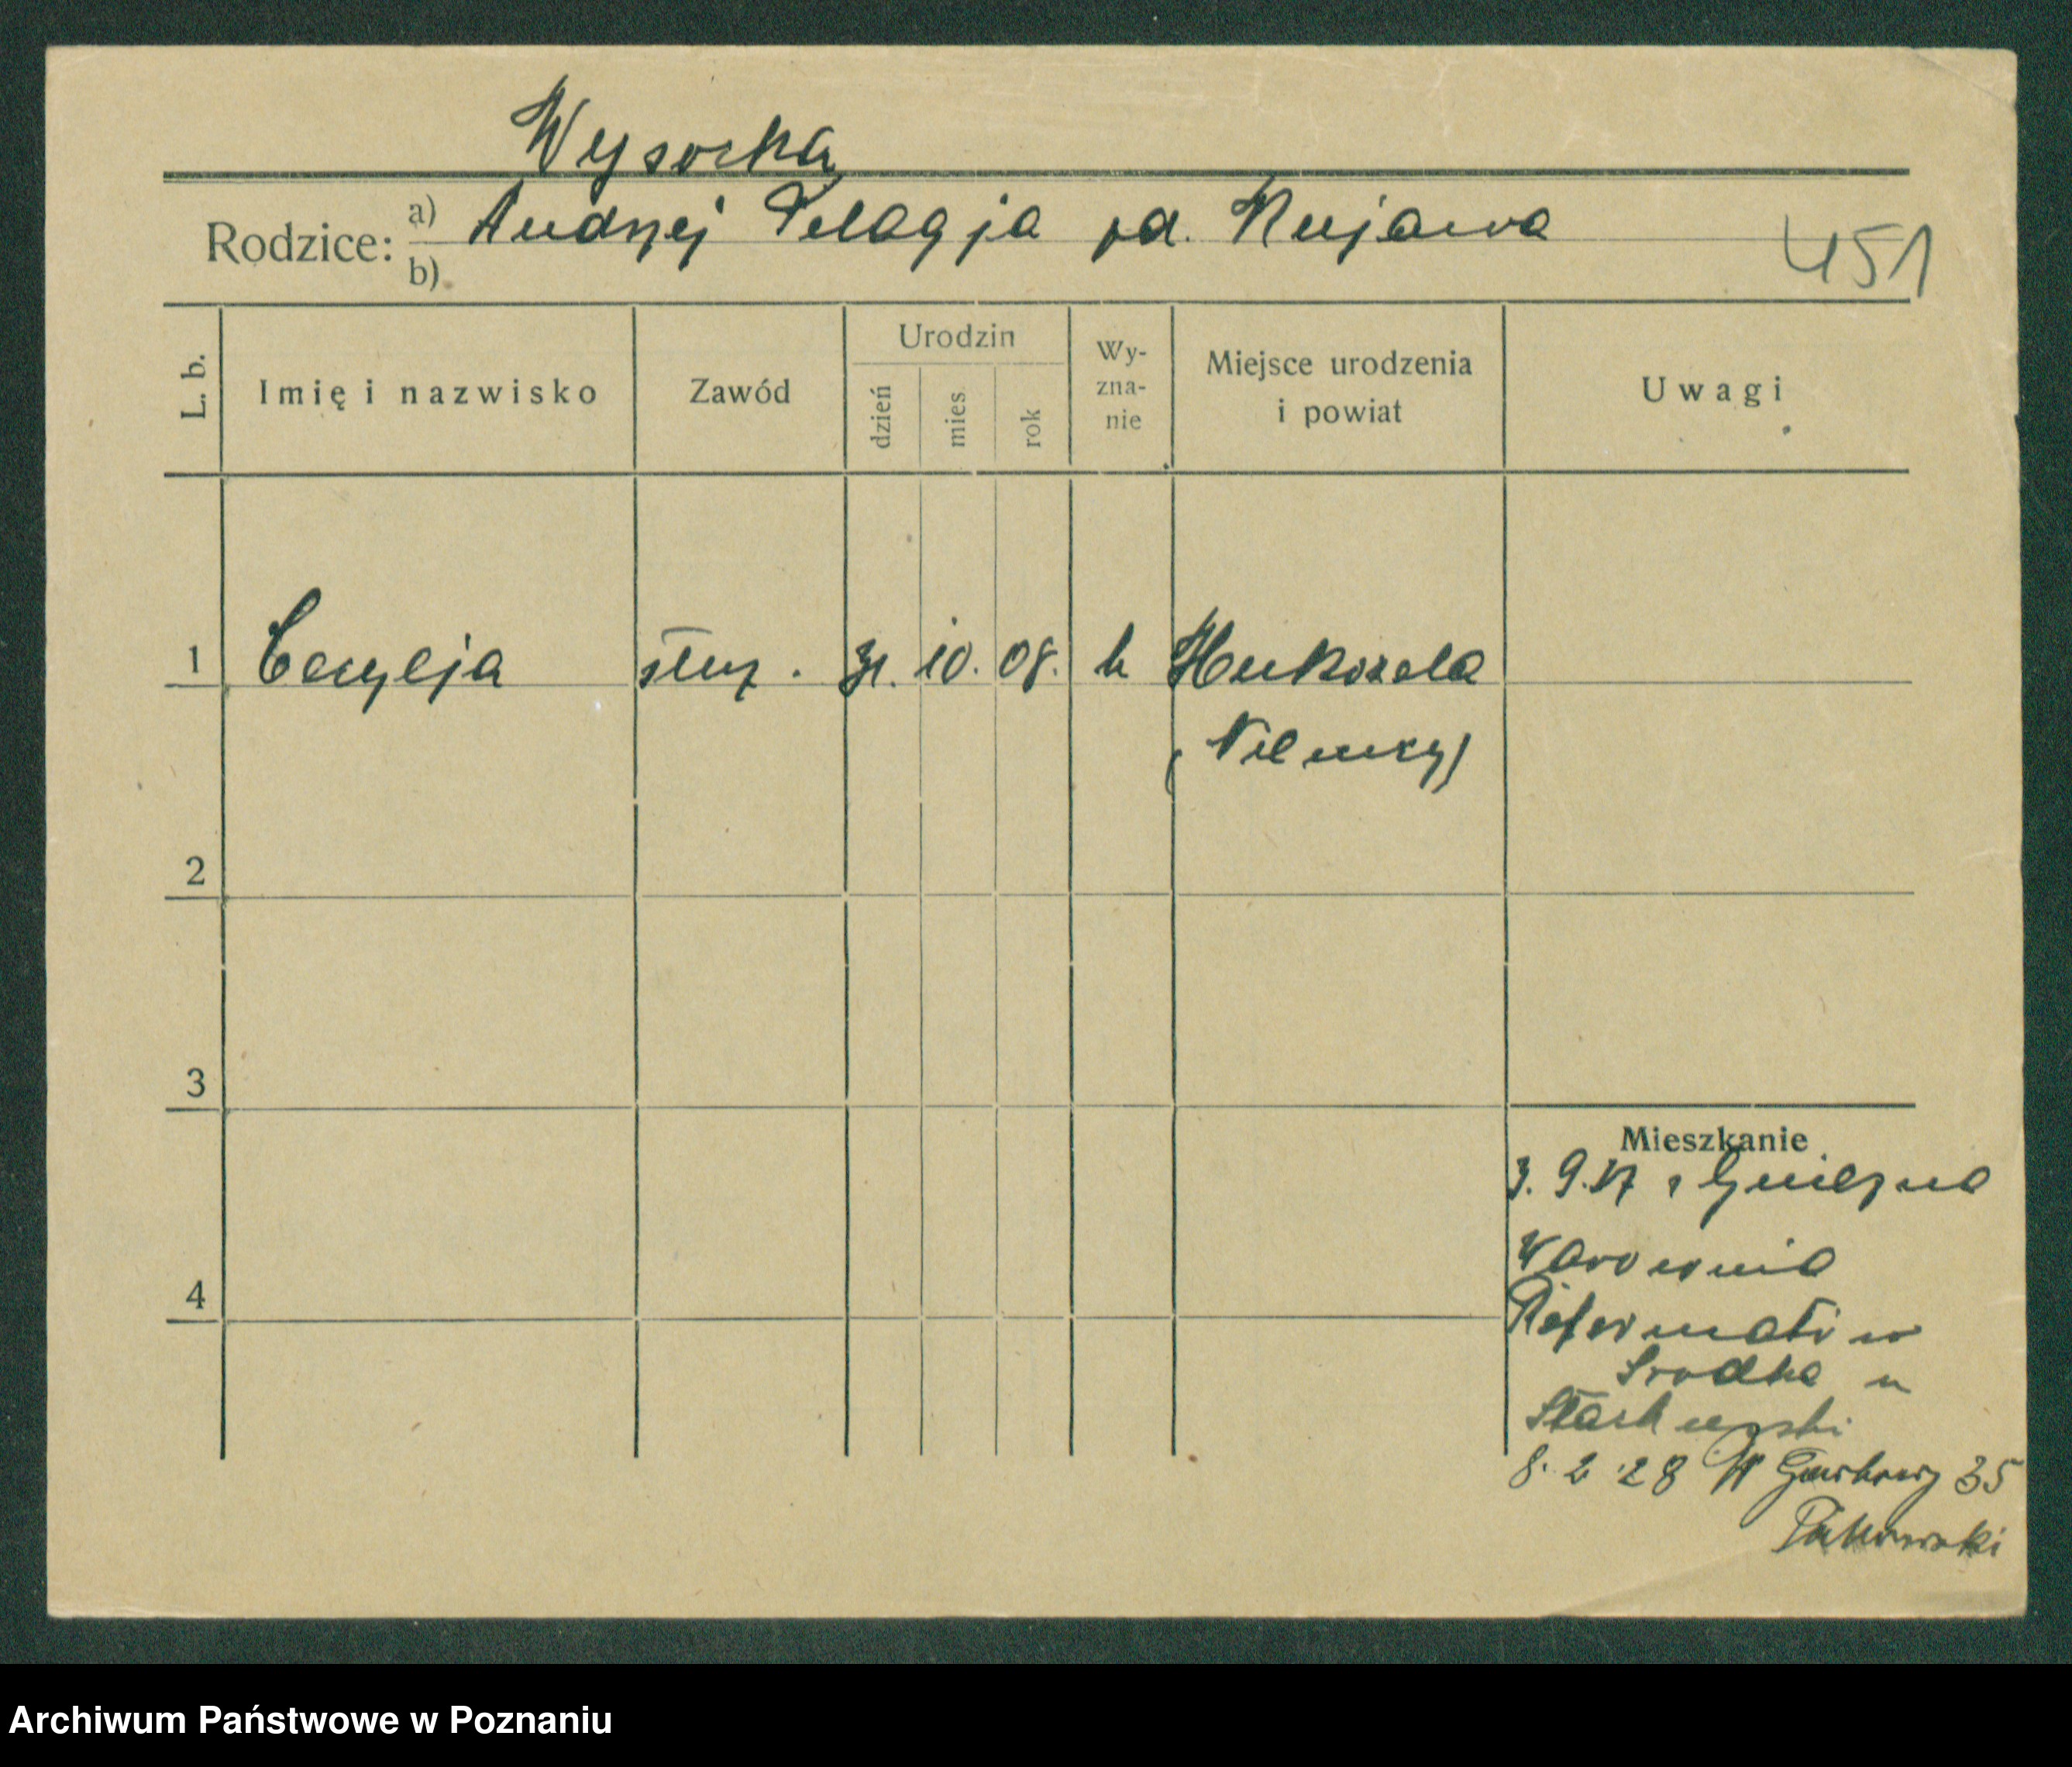 Wysocka
Rodzice: a) Andrzej Pelagja zd. Kujawa
b)
451
L. b.
Imię i nazwisko
Zawód
Urodzin
dzień
mies.
rok
Wy-
zna-
nie
Miejsce urodzenia
i powiat
Uwagi
1 Cecylja służ. 31. 10. 08. k
(Niemcy)
2
3
4
Mieszkanie
3. 9. 27 z Gniezna
Warownia
Reformatów
Srodka u
8. 2 28 W Garbary 35
Archiwum Państwowe w Poznaniu